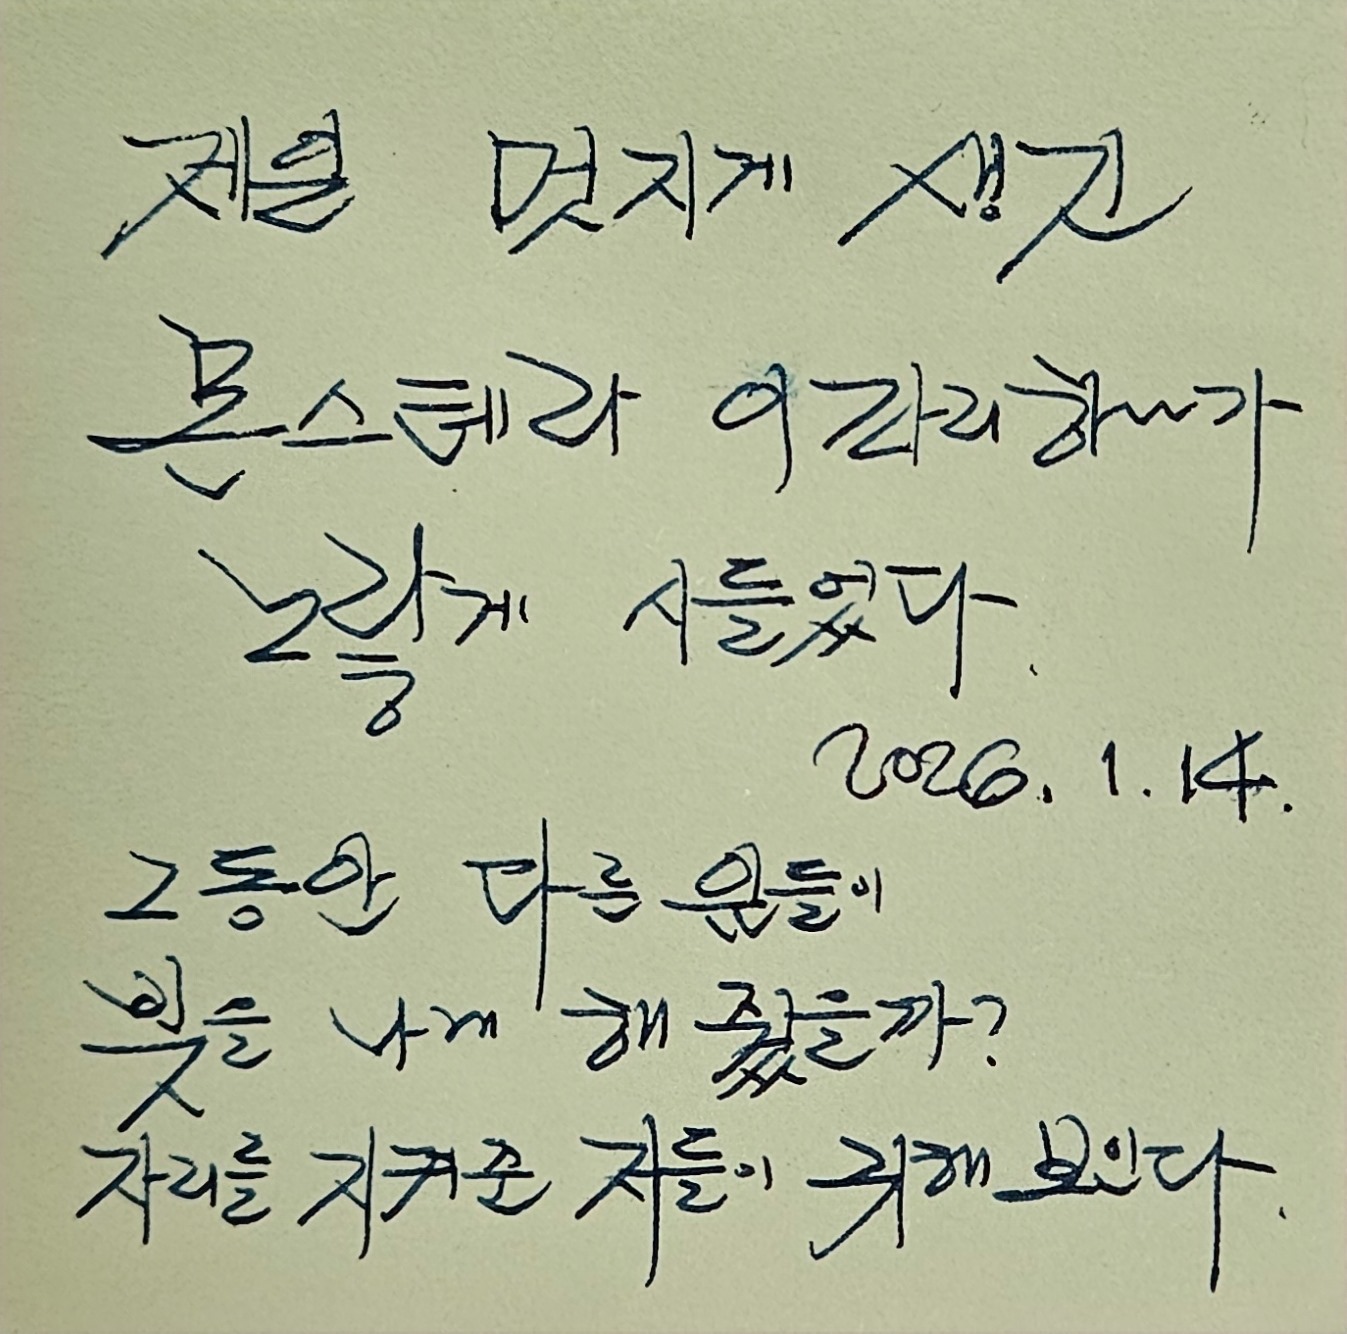 제일 멋지게 생긴
몬스테라 이파리 하나가
노랗게 시들었다.
2026. 1. 14.
그동안 다른 잎들이
빛나게 해 줬을까?
자리를 지켜준 자들이 귀해 보인다.